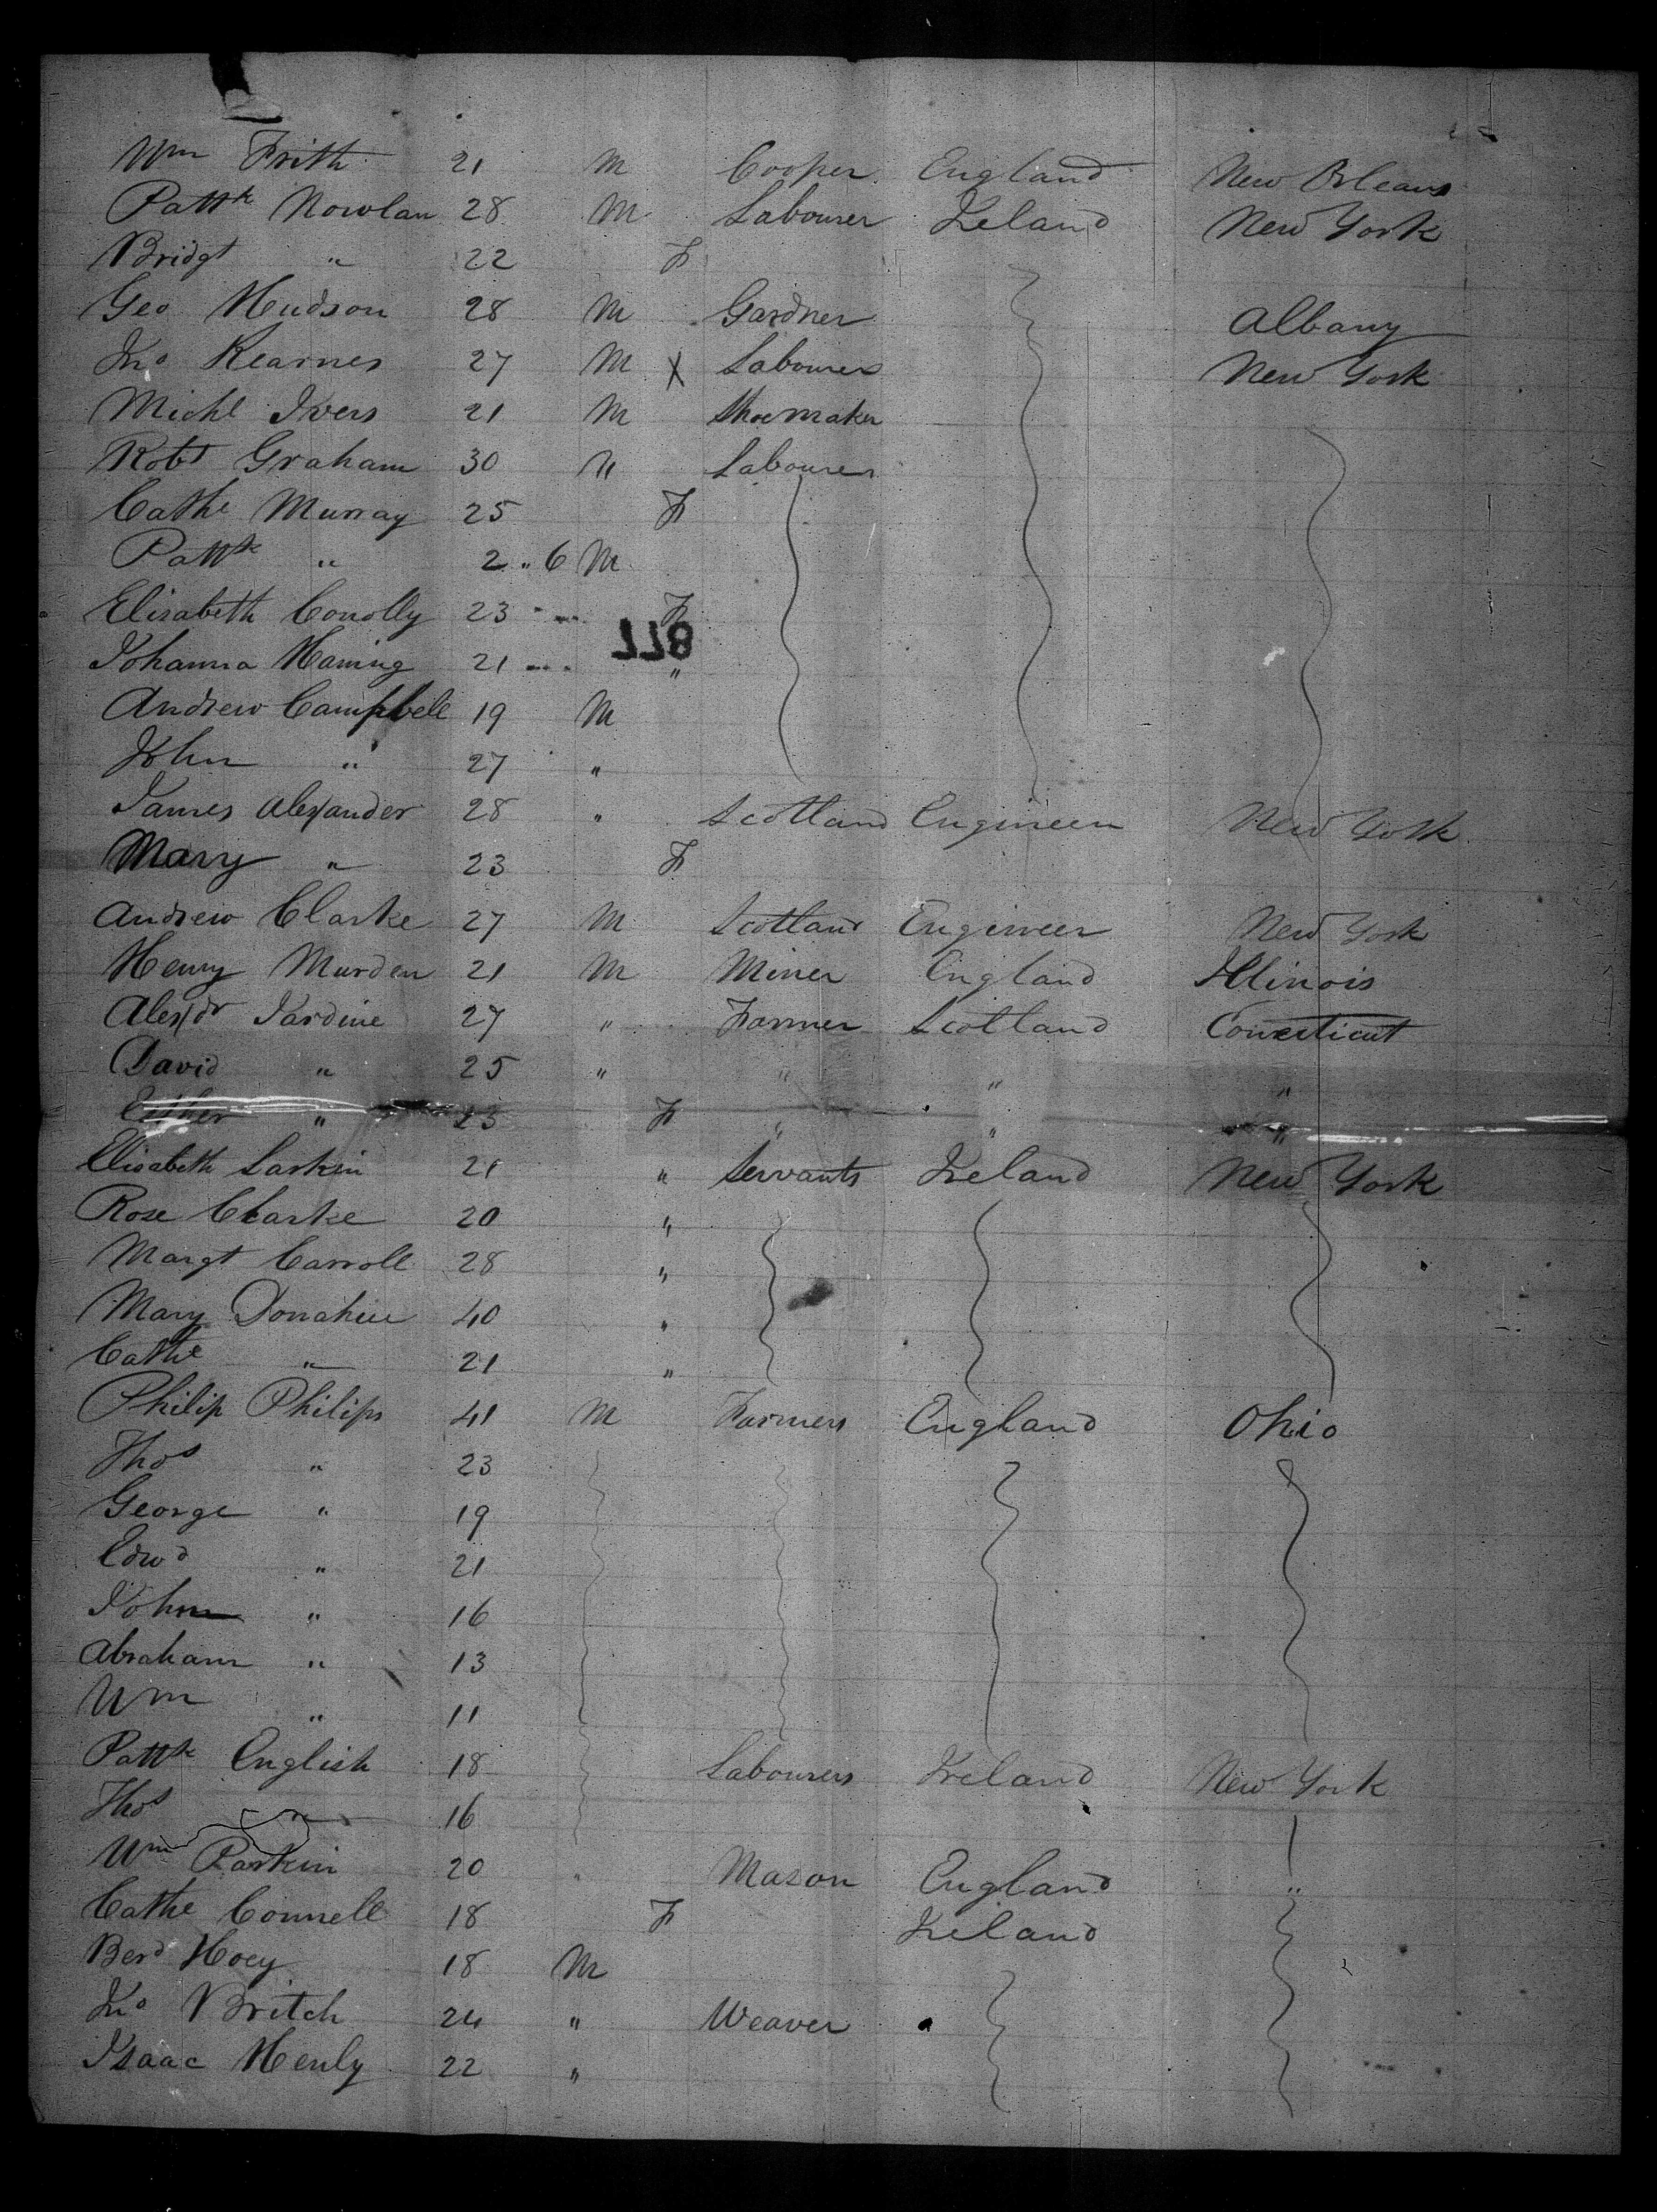 Wm Frith 21 M Cooper England New Orleans
Pattk Nowlan 28 M Labourer Ireland New York
Bridgt " 22 F
Geo Hudson 28 M Gardner Albany
Jno Kearnes 27 M X Labourer New York
Michl Ivers 21 M Shoemaker
Robt Graham 30 " Labourer
Cathe Murray 25 F
Pattk " 2 " 6 M
Elisabeth Conolly 23 " F
Johanna Haning 21 " "
Andrew Campbell 19 M
John " 27 "
James Alexander 28 " Scotland Engineer New York
Mary " 23 F
Andrew Clarke 27 M Scotland Engineer New York
Henry Murden 21 M Miner England Illinois
Alexdr Jardine 27 " Farmer Scotland Conecticut
David " 25 " " " "
Esther " 23 F " " "
Elisabeth Larkin 21 " Servants Ireland New York
Rose Clarke 20 "
Margt Carroll 28 "
Mary Donahue 40 "
Cathe " 21 "
Philip Philips 41 M Farmers England Ohio
Thos " 23
George " 19
Edwd " 21
John " 16
Abraham " 13
Wm " 11
Pattk English 18 Labourers Ireland New York
Thos " 16
Wm Parkin 20 " Mason England "
Cathe Connell 18 F Ireland
Berd Hoey 18 M
Jno Britch 24 " Weaver
Isaac Henly 22 "